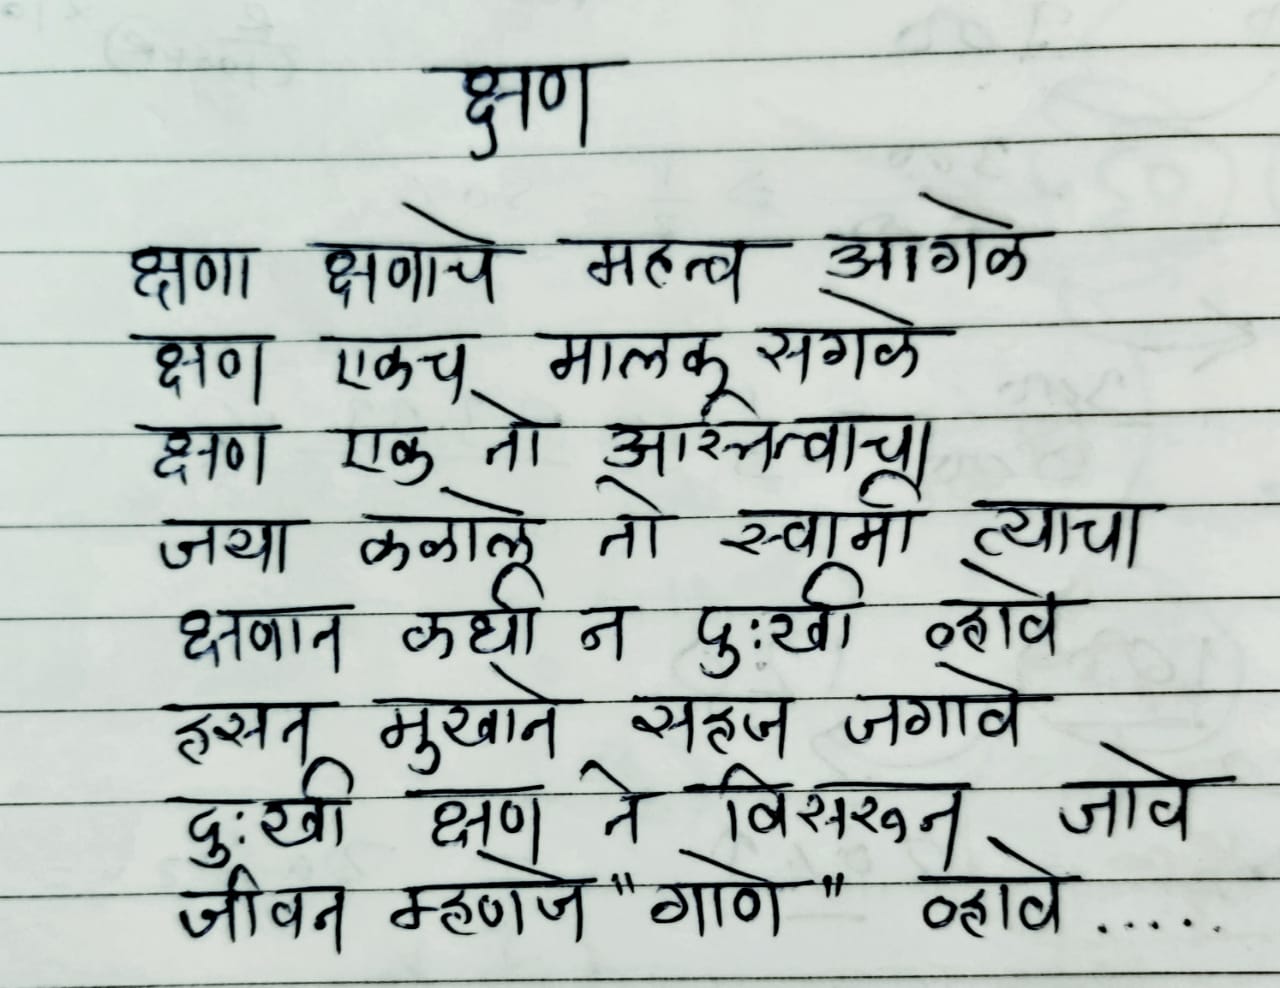 क्षण
क्षणा क्षणाचे महत्व आगळे
क्षण एकच मालक सगळे
क्षण एक तो अस्तित्वाचा
जया कळाले तो स्वामी त्याचा
क्षणात कधी न दुःखी व्हावे
हसत मुखाने सहज जगावे
दुःखी क्षण ते विसरून जावे
जीवन म्हणजे "गाणे" व्हावे.....